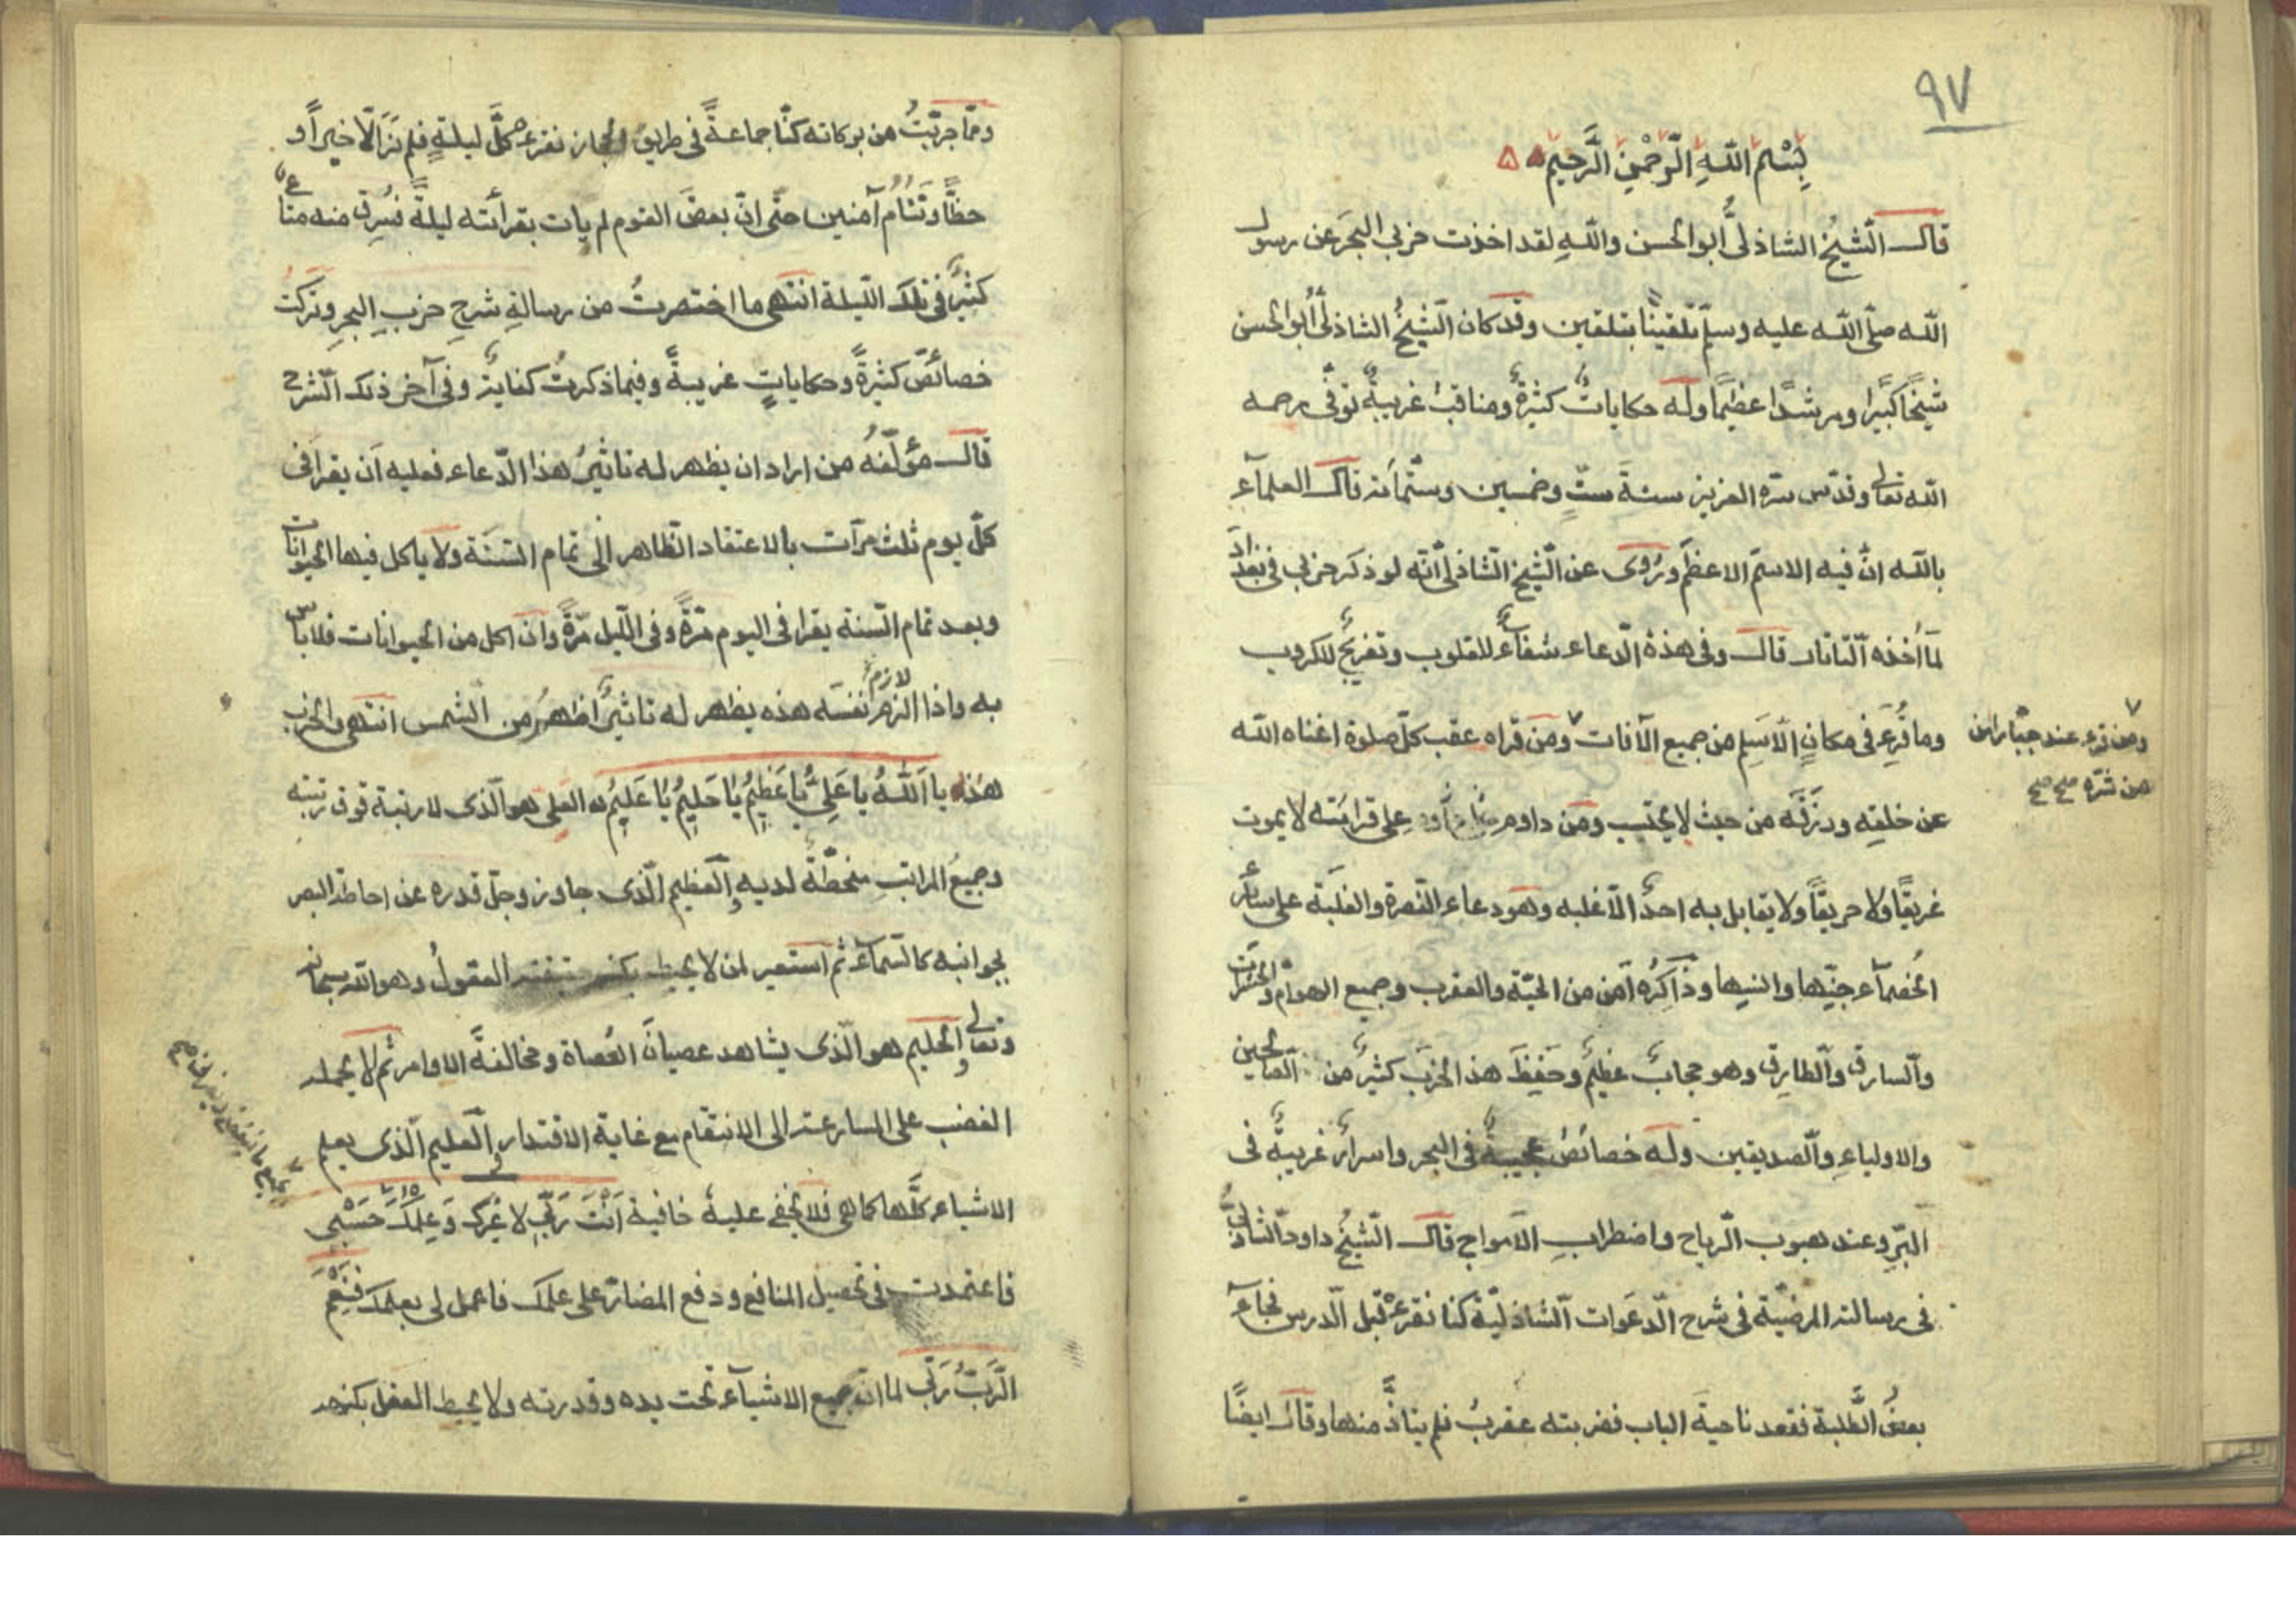 ٩٧
بِسْمِ اللّهِ الرَّحْمٰنِ الرَّحِيمِ
قال الشيخُ الشاذلىُّ أبو الحسن واللّهِ لقد اخذت حزبى البحرَ عن رسول
اللّه صلّى اللّه عليه وسلّم تلقينًا بتلقين وقد كان الشيخُ الشاذلىُّ أبو الحسن
شيخًا كبيرًا ومرشدًا عظيمًا وله حكاياتٌ كثيرةٌ ومناقبُ غريبةٌ توفّى رحمه
اللّه تعالى وقدّس سرّه العزيز سنةَ ستٍّ وخمسين وستّمائة قال العلماء
باللّه انّ فيه الاسمَ الاعظمَ ورُوى عن الشيخ الشاذلىّ انّه لو ذكر حزبى فى بغداد
لمَا أخذه التاتار قال وفى هذه الدّعاء شفاءٌ للقلوب وتفريجٌ للكروب
وما قُرِءَ فى مكانٍ الّا سَلِمَ من جميع الآفات ومَن قراه عقب كلّ صلوة اغناه اللّه
ومن قرء عند جبّار امن
من شرّه صح صح
عن خلقِه ورزَقَه من حيث لا يحتسب ومَن داوم على قرائته لا يموت
غريقًا ولا حريقًا ولا يقابل به احدٌ الّا غلبه وهو دعاء النّصرة والغلَبة على سائر
الخُصَماء جنّيها وانسيها وذاكرُه أمن من الحيّة والعقرب وجميع الهوامّ والحشرات
والسارق والطارق وهو حجابٌ عظيمٌ وحَفِظَ هذا الحزبَ كثيرٌ من الصالحين
والاولياءِ والصديقين وله خصائصُ عجيبةٌ فى البحر واسرارٌ غريبةٌ فى
البَرّ وعند هبوب الرّياح واضطرابِ الامواج قال الشيخُ داود الشاذلىُّ
فى رسالته المرضيّة فى شرح الدّعَوات الشاذليّة كنا نقرءه قبل الدرس فجاء
بعضُ الطلَبة فقعد ناحيةَ الباب فضربته عقربٌ فلم يتأذَّ منها وقال ايضًا
وممّا جرّبتُ من بركاته كنّا جماعةً فى طريق الحجاز نقرءه كلَّ ليلةٍ فلم نَرَ الّا خيرًا و
حظًّا ونَنَامُ آمنين حتّى انّ بعضَ القوم لم يات بقرائته ليلةً فسُرِق منه متاع
كثيرٌ فى تلك الليلة انتهى ما اختصرتُ من رسالةِ شرحِ حزبِ البحرِ وتركت
خصائصَ كثيرةً وحكاياتٍ غريبةً وفيما ذكرتُ كفايةٌ وفى آخر ذلك الشرح
قال مؤلّفهُ من اراد ان يظهر له تاثيرُ هذا الدّعاء فعليه أن يقرا فى
كلّ يوم ثلث مرّات بالاعتقاد الظاهر الى تمام السَنَة ولا ياكل فيها الحيوانات
وبعد تمام السّنة يقرا فى اليوم مرّةً وفى اللّيل مرّةً وان اكل من الحيوانات فلا باس
لازم
به واذا الزم نفسَه هذه يظهر له تاثيرٌ أظهرُ من الشمس انتهى والحزب
هذه يا اَللّٰهُ يا عَلِىُّ يَا عَظِيمُ يَا حَلِيمُ يَا عَلِيمُ العلى هو الّذى لا رتبة فوق رتبته
وجميعُ المراتب منحطّةٌ لديه والعظيم الّذى جاوز وجلّ قدره عن احاطة البصر
بجوانبه كالسماء ثم استعير لمن لا يحيط بكنه العقولُ وهو اللّه سبحانه
وتعالى والحليم هو الّذى يشاهد عصيانَ العُصاة ومخالفةَ الاوامر ثم لا يحمله
الغضب على المسارعة الى الانتقام مع غاية الاقتدار والعليم الّذى يعلم
الاشياء كلَّها كما هى فلا تخفى عليه خافية اَنْتَ رَبّى لا غيرك وَعِلْمُكَ حَسْبِى
فاعتمدت فى تحصيل المنافع ودفع المضارّ على علمك فاعمل لى بعلمك فَنِعْمَ
الرَّبُّ رَبّى لما انّ جميع الاشياء تحت يده وقدرته ولا يحيط العقل بكنهه